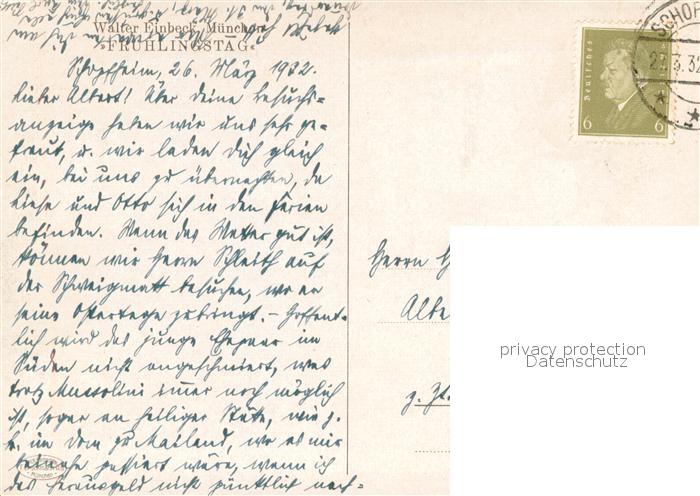 Walter Einbeck, München
»FRÜHLINGSTAG«
Schopfheim, 26. März 1932.
Lieber Albert! Über deine Besuchs-
anzeige haben wir uns sehr ge-
freut, u. wir laden dich gleich
ein, bei uns zu übernachten, da
Liese und Otto sich in den Ferien
befinden. Wenn das Wetter gut ist,
können wir Herrn Schleith auf
der Schweigmatt besuchen, wo er
seine Ostertage zubringt. – Hoffent-
lich wird das junge Ehepaar im
Süden nicht angeschmiert, was
trotz Mussolini immer noch möglich
ist, sogar an heiliger Stätte, wie z.
B. im Dom zu Mailand, wo es mir
beinahe passiert wäre, wenn ich
das Herausgeld nicht pünktlich nach-
Deutsches
6 6
SCHO
27.3.32
Herrn
Albe
z. Zt.
privacy protection
Datenschutz